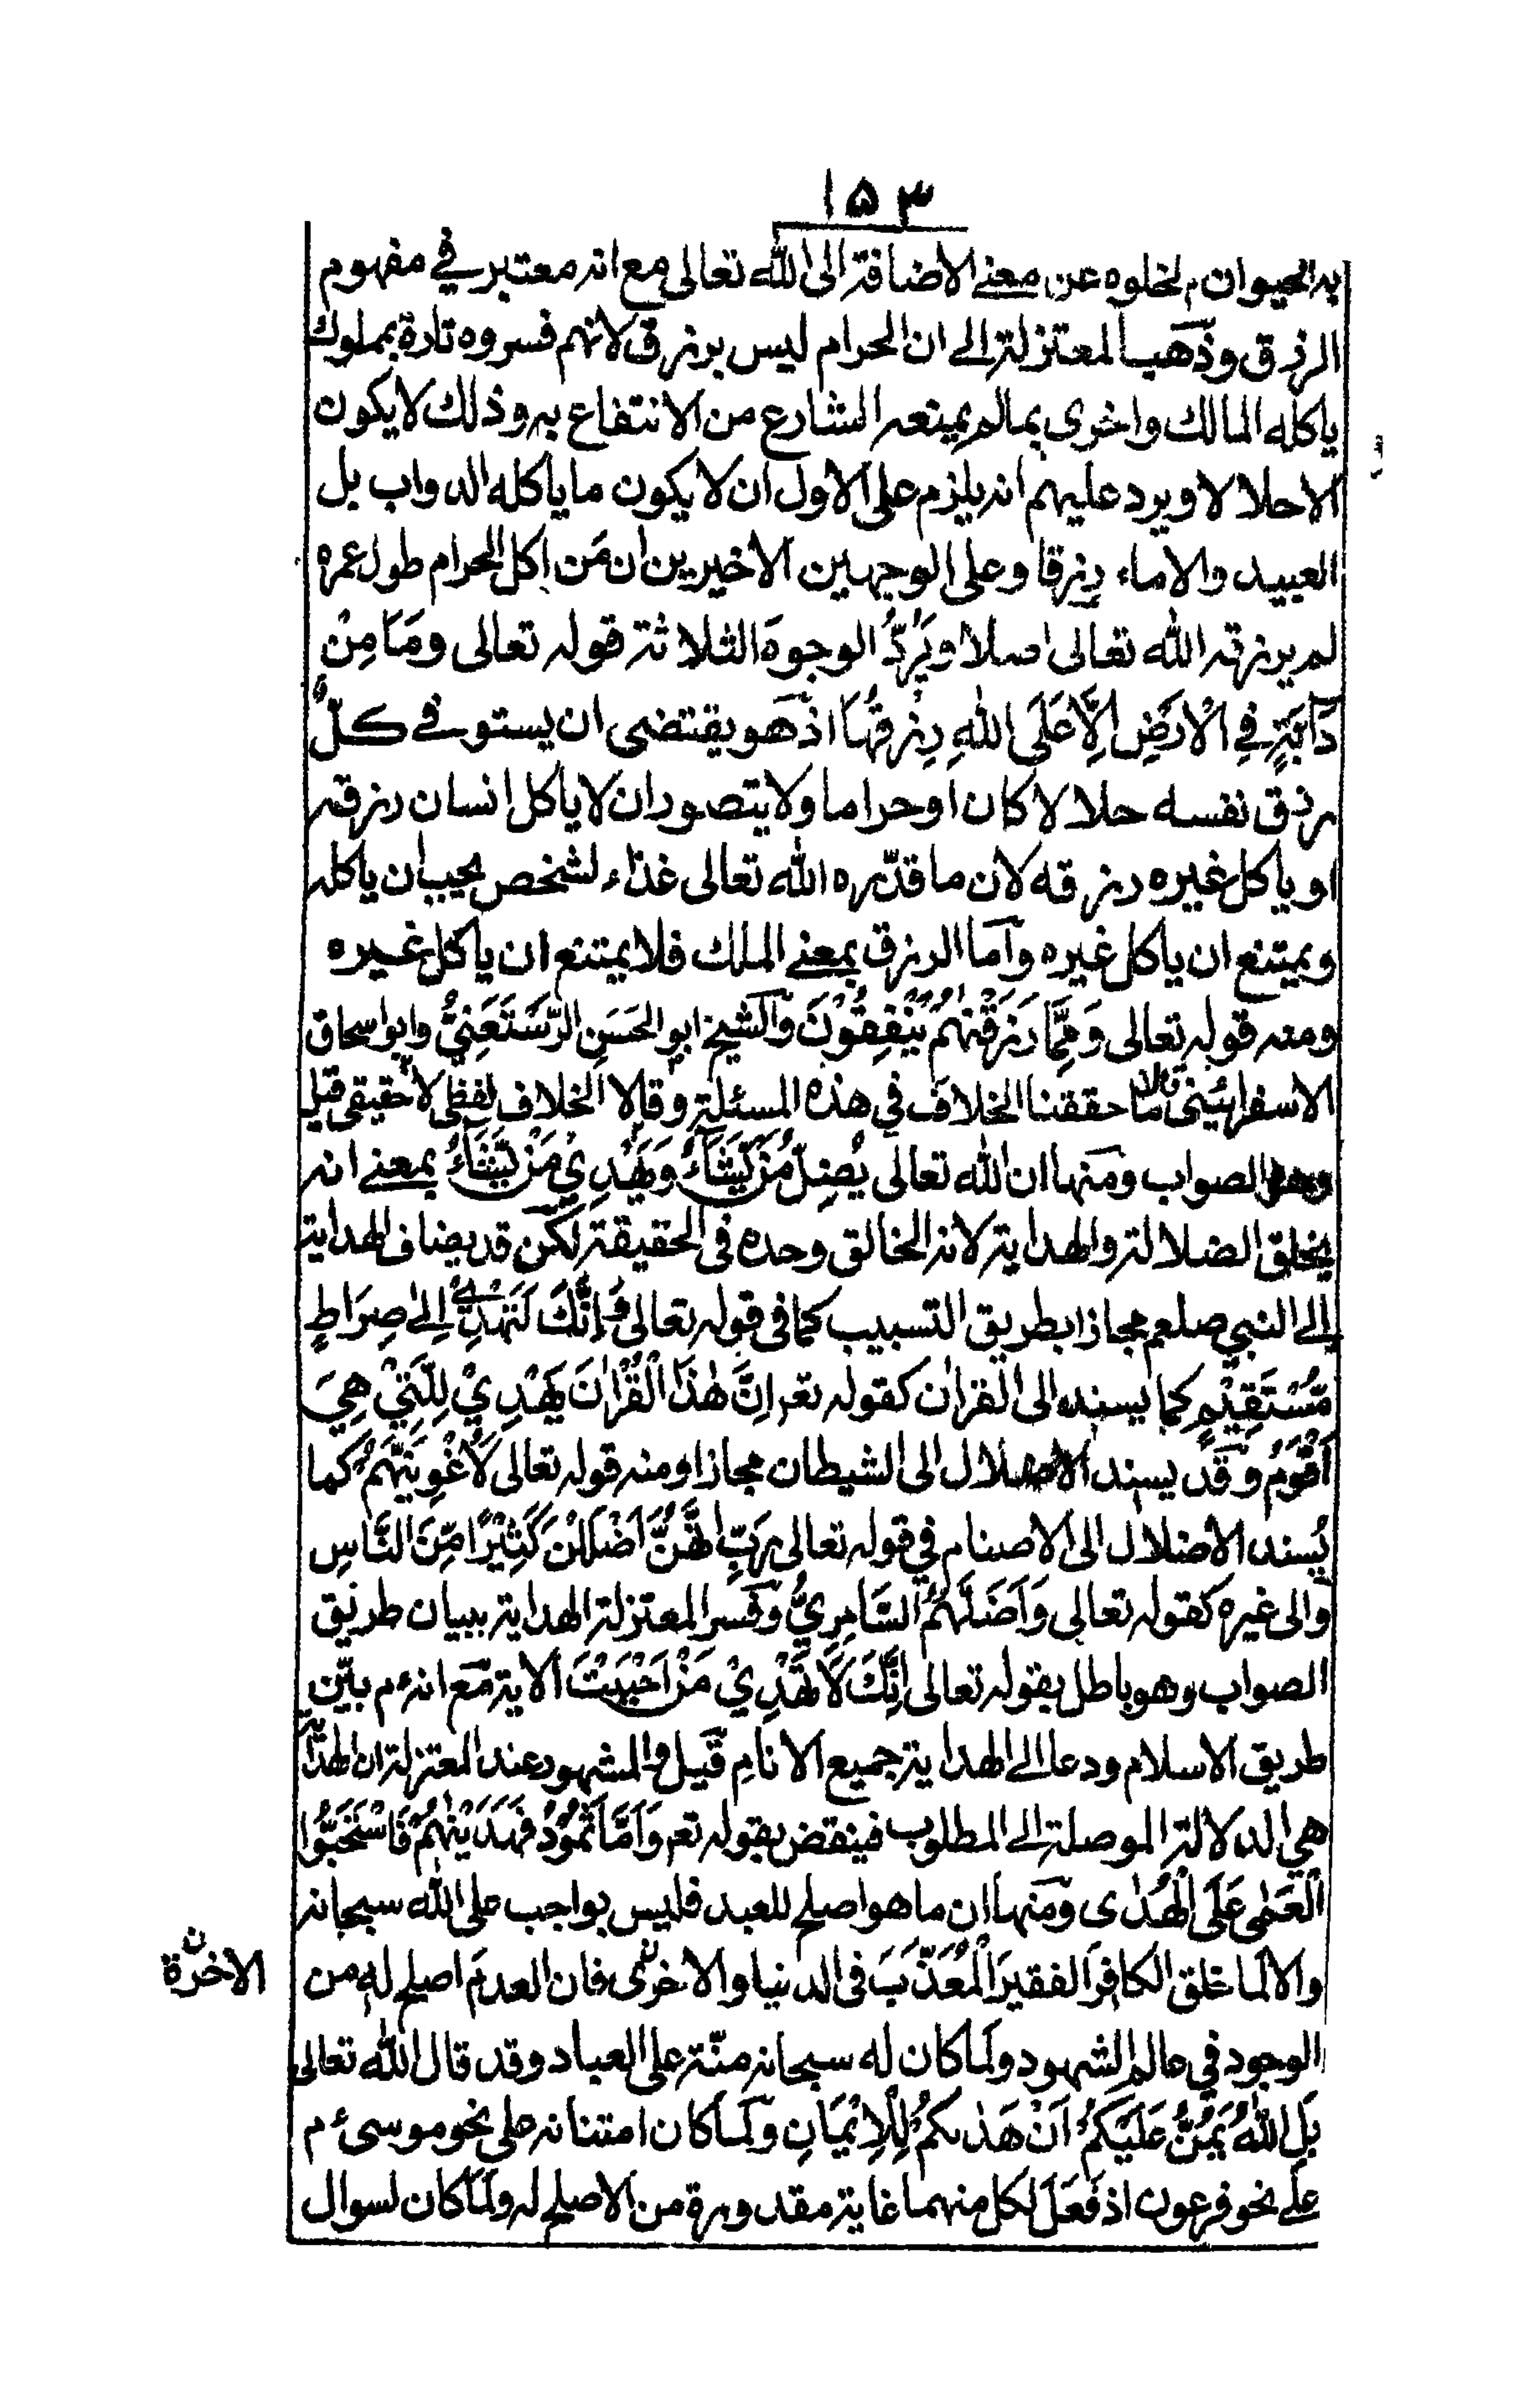 ١٥٣
به الحيوان م لخلوه عن معنے الاضافة الى الله تعالى مع انه معتبر في مفهوم
الرزق وذهب المعتزلة الے ان الحرام ليس برزق لانهم فسروه تارة بمملوك
ياكله المالك واخرى بما لم يمنعه الشارع من الانتفاع به وذلك لا يكون
الاحلالا ويرد عليهم انه يلزم على الاول ان لا يكون ما ياكله الدواب بل
العبيد والاماء رزقا وعلى الوجهين الاخيرين ان مَن اكل الحرام طول عمره
لم يرزقه الله تعالى اصلا ويَرُدُّ الوجوهَ الثلاثة قوله تعالى ومَا مِنْ
دَآبَّةٍ فِي الْاَرْضِ اِلَّا عَلَى اللهِ رِزْقُهَا اذ هو يقتضى ان يستوفے كلٌّ
رزق نفسه حلالا كان او حراما ولا يتصور ان لا ياكل انسان رزقه
او ياكل غيره رزقه لان ما قدّره الله تعالى غذاء لشخص يجب ان ياكله
ويمتنع ان ياكل غيره وآما الرزق بمعنے الملك فلا يمتنع ان ياكل غيره
ومنه قوله تعالى وَمِمَّا رَزَقْنٰهُمْ يُنْفِقُوْنَ وآلشيخ ابو الحَسَنِ الرُّسْتَغْنِيُّ وابو اسحاق
الاسفرائينى قالا ما حققنا الخلاف في هذه المسئلة وقالا الخلاف لفظى لا حقيقى قيل
وهو الصواب ومنها ان الله تعالى يُضِلُّ مَنْ يَّشَآءُ وَيَهْدِيْ مَنْ يَّشَآءُ بمعنے انه
يخلق الضلالة والهداية لانه الخالق وحده فى الحقيقة لكن قد يضاف الهداية
الے النبي صلعم مجازا بطريق التسبيب كما فى قوله تعالى وَاِنَّكَ لَتَهْدِيْٓ اِلےٰ صِرَاطٍ
مُّسْتَقِيْمٍ كما يسنده الى القران كقوله تعر اِنَّ هٰذَا الْقُرْاٰنَ يَهْدِيْ لِلَّتِيْ هِيَ
اَقْوَمُ وقد يسند الاضلال الى الشيطان مجازا ومنه قوله تعالى لَاُغْوِيَنَّهُمْ كما
يُسند الاضلال الى الاصنام في قوله تعالى رَبِّ اِنَّهُنَّ اَضْلَلْنَ كَثِيْرًا مِّنَ النَّاسِ
والى غيره كقوله تعالى وَاَضَلَّهُمُ السَّامِرِيُّ وفسر المعتزلة الهداية ببيان طريق
الصواب وهو باطل بقوله تعالى اِنَّكَ لَا تَهْدِيْ مَنْ اَحْبَبْتَ الاية مع انه ؑم بيّن
طريق الاسلام ودعا الے الهداية جميع الانامِ قيل والمشهور عند المعتزلة ان الهداية
هي الدلالة الموصلة الے المطلوب فينقض بقوله تعر وَاَمَّا ثَمُوْدُ فَهَدَيْنٰهُمْ فَاسْتَحَبُّوا
الْعَمٰى عَلَى الْهُدٰى ومنها ان ما هو اصلح للعبد فليس بواجب على الله سبحانه
والا لما خلق الكافرَ الفقيرَ المُعَذَّبَ فى الدنيا والاخرٰى فان العدم اصلح له من
الاخرة ن
الوجود في عالم الشهود ولما كان له سبحانه منّة على العباد وقد قال الله تعالى
بَلِ اللهُ يَمُنُّ عَلَيْكُمْ اَنْ هَدٰىكُمْ لِلْاِيْمَانِ ولما كان امتنانه على نحو موسى ؑم
علے نحو فرعون اذ فَعَلَ لكل منهما غاية مقدورة من الاصلح له ولما كان لسوال